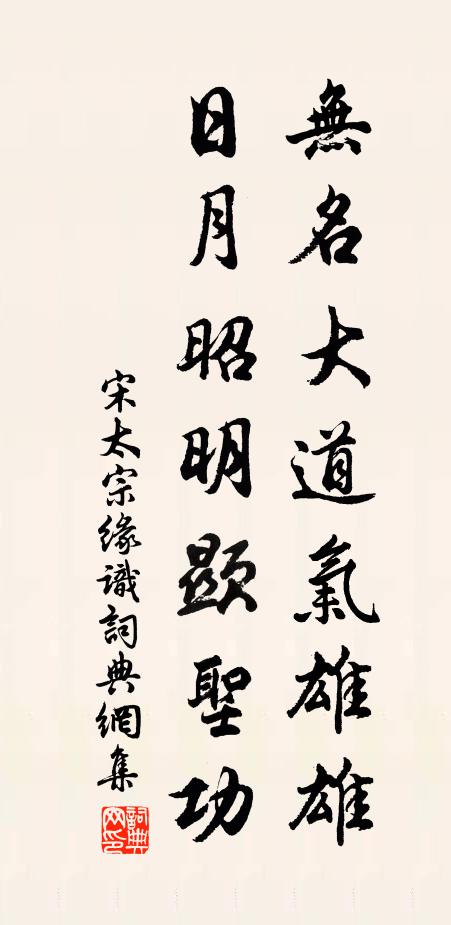 無名大道氣雄雄
日月昭明顯聖功
宋太宗緣識詞典網集
詞典
網印